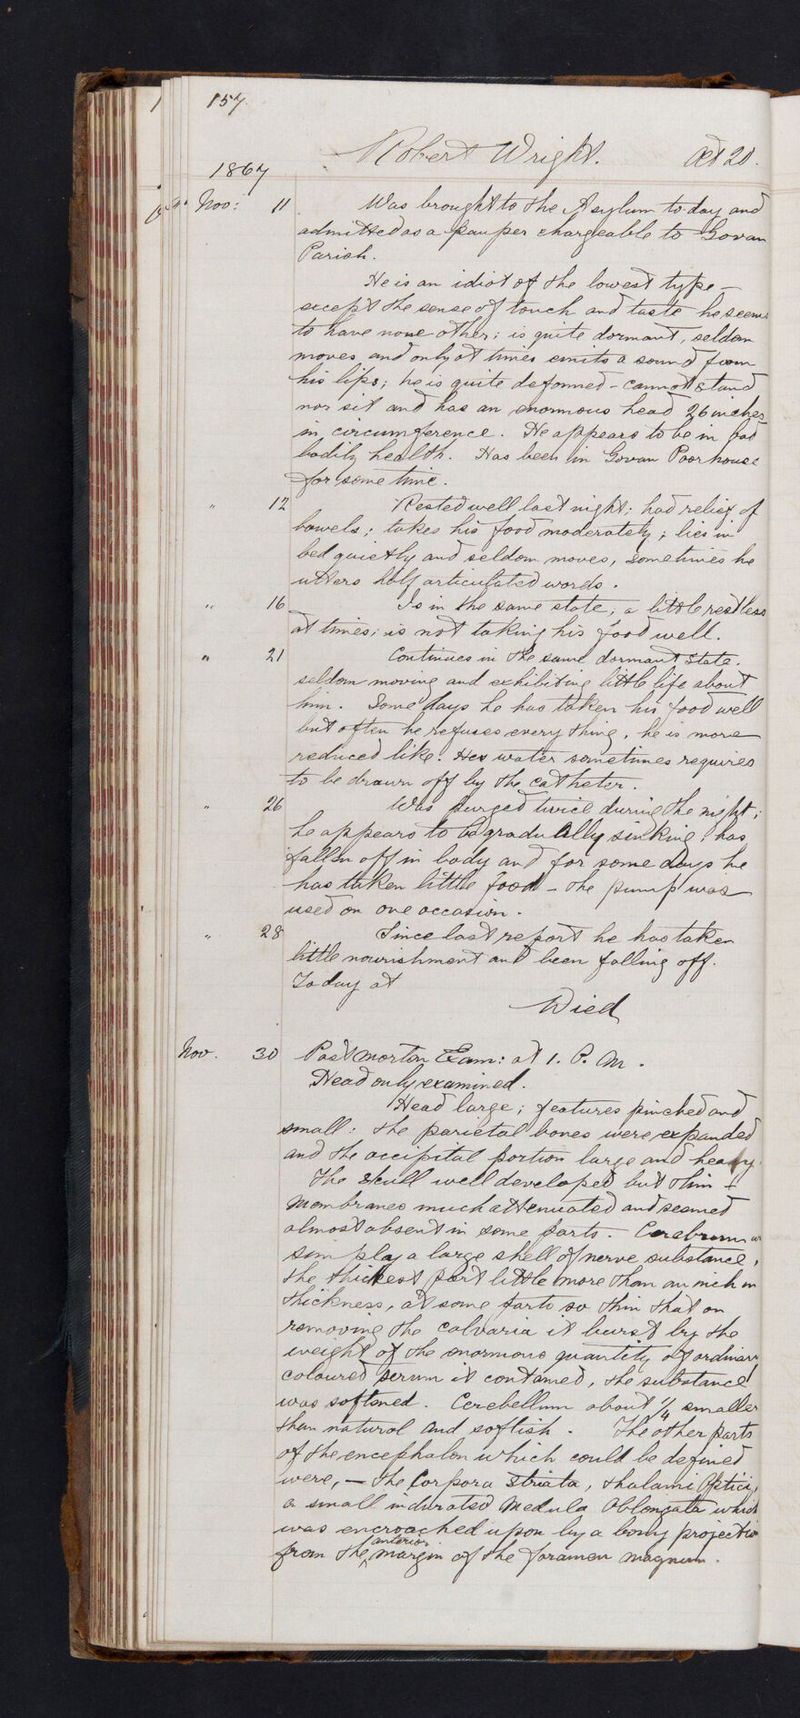 157.
Robert Wright. Æt 20.
1867
Nov: 11 Was brought to the Asylum to day and
admitted as a pauper chargeable to Govan
Parish.
He is an idiot of the lowest type –
except the sense of touch and taste he seems
to have none other; is quite dormant, seldom
moves and only at times emits a sound from
his lips; he is quite deformed – cannot stand
nor sit and has an enormous head 26 inches
in circumference. He appears to be in bad
bodily health. Has been in Govan Poorhouse
for some time.
" 12 Rested well last night; had relief of
bowels; takes his food moderately; lies in
bed quietly and seldom moves, sometimes he
utters half articulated words.
" 16 Is in the same state, a little restless
at times; is not taking his food well.
" 21 Continues in the same dormant state.
seldom moving and exhibiting little life about
him. Some days he has taken his food well
but often he refuses every thing, he is more
reduced like. Her water sometimes requires
to be drawn off by the catheter.
" 26 Was purged twice during the night;
he appears to be gradually sinking; has
fallen off in body and for some days he
has taken little food – the pump was
used on one occasion.
" 28 Since last report he has taken
little nourishment and been falling off.
To day at
Died
Nov. 30 Post morten Exam: at 1. P. M.
Head only examined.
Head large; features pinched and
small: the parietal bones were expanded
and the occipital portion large and heavy.
The skull well developed but thin –
Membranes much attenuated and seemed
almost absent in some parts. Cerebrum
simply a large shell of nerve substance,
the thickest part little more than an inch in
thickness, at some parts so thin that on
removing the calvaria it burst by the
weight of the enormous quantity of ordinary
coloured serum it contained, the substance
was softened. Cerebellum about 1/4 smaller
than natural and softish. The other parts
of the encephalon which could be defined
were, – the Corpora Striata, thalami Optici,
a small indurated Medula Oblongata which
was encroached upon by a bony projectio
from the anterior margin of the foramen magnum.